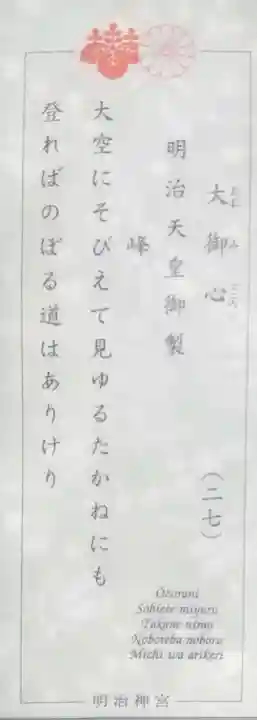 大御心
おおみこころ
明治天皇御製
(二七)
峰
大空にそびえて見ゆるたかねにも
登ればのぼる道はありけり
Ōzorani
Sobiete miyuru
Takane nimo
Noboreba noboru
Michi wa arikeri
明治神宮